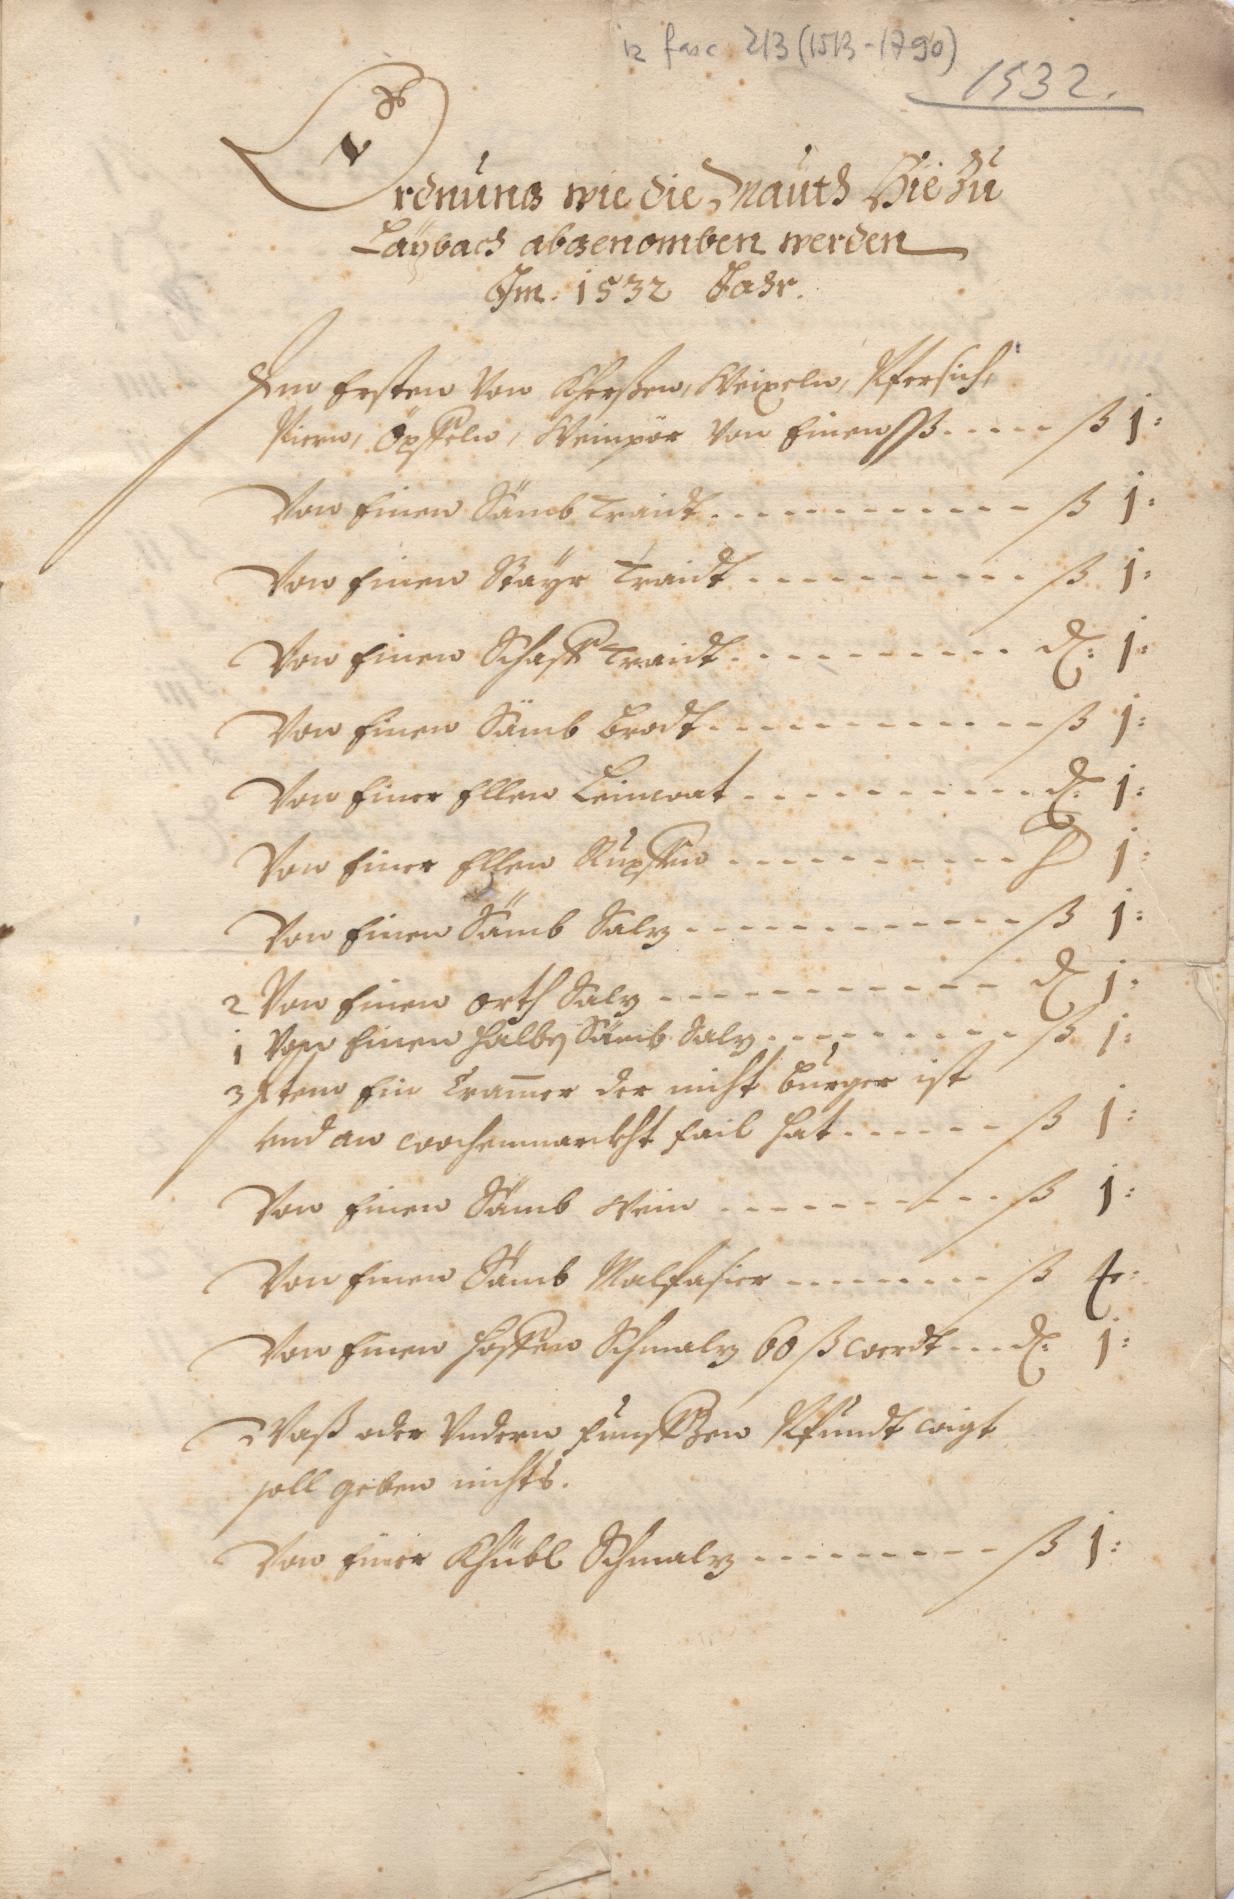 iz fasc 213 (1513-1790)
1532.
Ordnung wie die Mauth Hie Zu
Laybach abgenomben werden
Im. 1532 Jahr.
Am Ersten Von Kherßen, Weixeln, Pfersich,
Piern, Öpffeln, Weinpör Von Einen ß ß 1:
Von Einen Sämb Traidt ß 1:
Von Einen Stayr Traidt ß 1:
Von Einen Schaff Traidt d: 1:
Von Einen Sämb Brodt ß 1:
Von Einer Ellen Leinwat d: 1:
Von Einer Ellen Rupffen h 1:
Von Einen Sämb Salz ß 1:
2 Von Einen Orth Salz d 1:
1 Von Einen halben Sämb Salz ß 1:
3 Item Ein Cramer der nicht burger ist
Und an wochenmarckht fail hat ß 1:
Von Einen Sämb Wein ß 1:
Von Einen Sämb Malfasier ß 4:
Von Einen Haffen Schmalz 60 ß werdt d: 1:
Waß oder Undern funffzen Pfundt wigt
soll geben nichts.
Von Einer Khübl Schmalz ß 1: